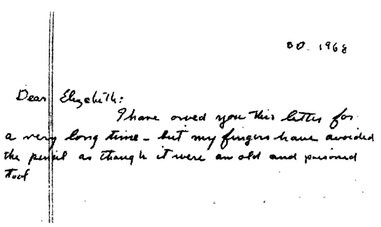 DD. 1968
Dear Elizabeth:
I have owed you this letter for
a very long time - but my fingers have avoided
the pencil as though it were an old and poisoned
tool